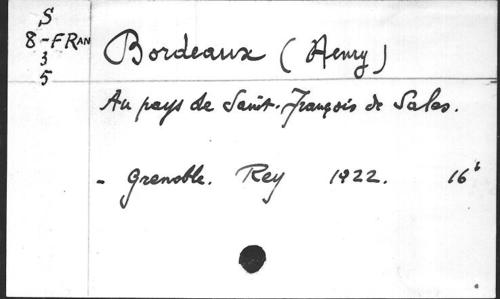 S
8-FRAN
3
5
Bordeaux (Henry)
Au pays de Saint-François de Sales.
- Grenoble. Rey 1922. 16°